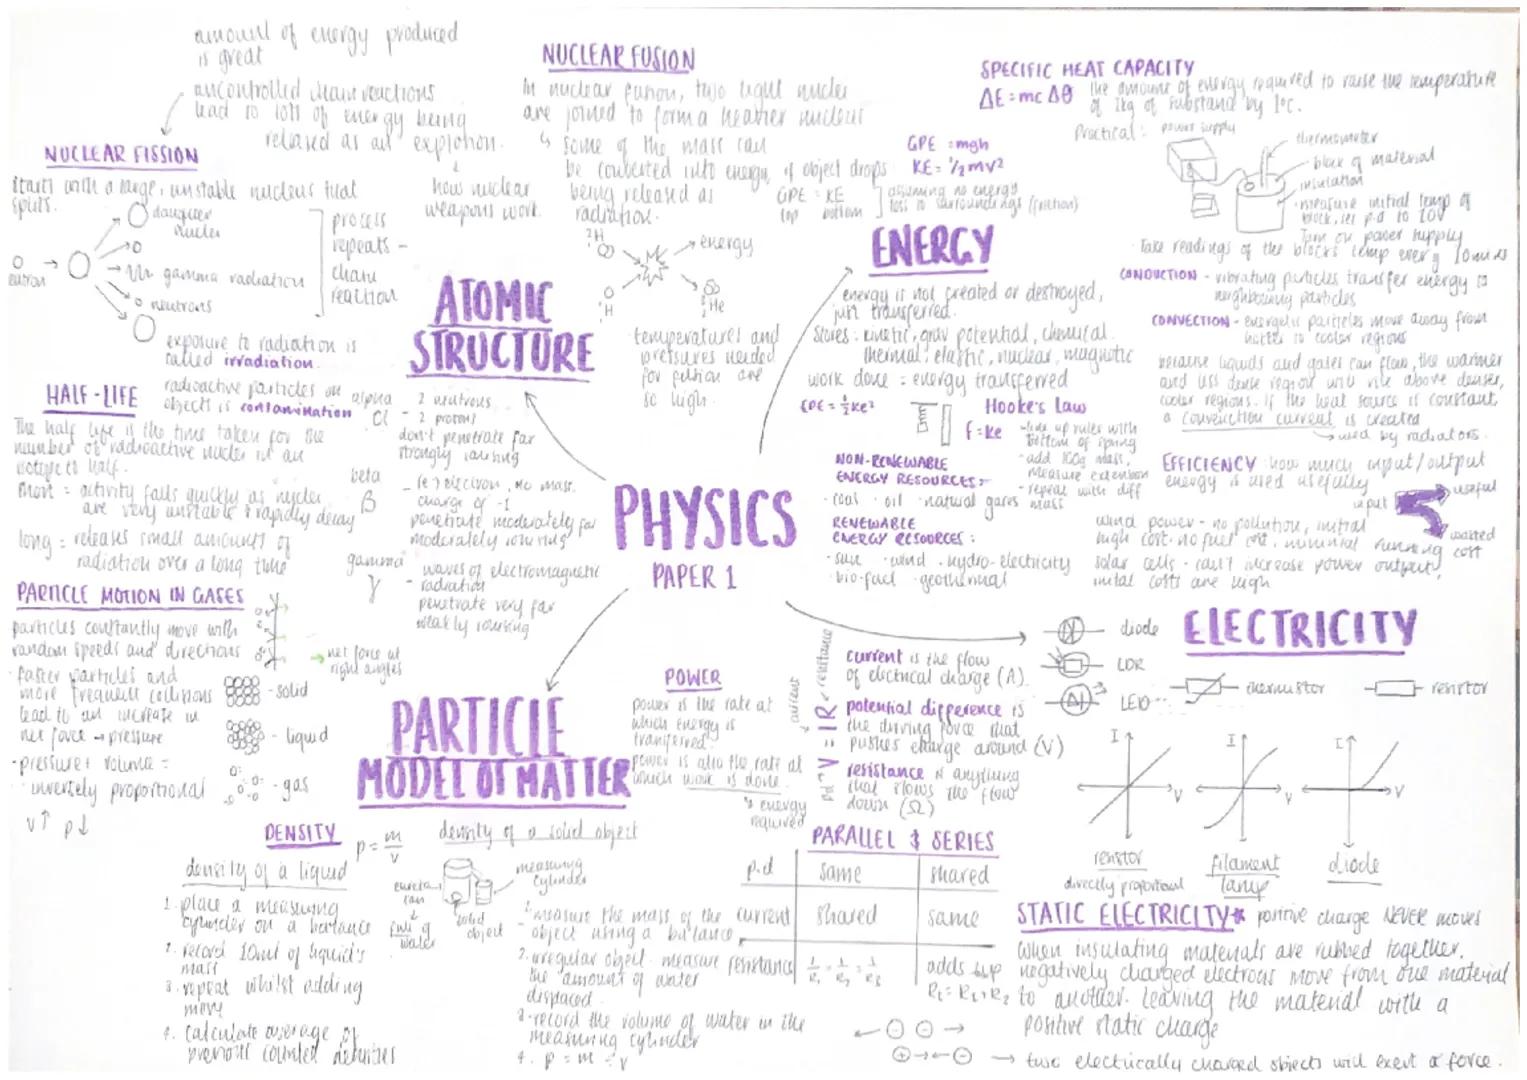 amount of energy produced
is great
uncontrolled chain reactions
lead to lots of energy being
released as an explotion.
how nuclear
weapons work.
NUCLEAR FISSION
starts with a large, unstable nucleus that
splits.
daughter
nuclei
gamma radiation
neutrons
process
repeats -
chain
reaction
exposure to radiation is
called irradiation.
radioactive particles on
objects is contamination
NUCLEAR FUSION
In nuclear fusion, two light nuclei
are joined to form a heavier nucleus
some of the mass can
be converted into energy,
being released as
radiation.
²H
energy
H
He
temperatures and
pressures needed
for fusion are
so high.
ATOMIC
STRUCTURE
HALF-LIFE
The half life is the time taken for the
number of radioactive nuclei in an
isotope to half.
short = activity falls quickly as nuclei
are very unstable & rapidly decay
long = releases small amounts of
radiation over a long time
alpha
α
- 2 neutrons
- 2 protons
don't penetrate far
strongly ionising
beta
β
- (e⁻) electron, no mass.
charge of -1
penetrate moderately far
moderately ionising
gamma
γ
- waves of electromagnetic
radiation
penetrate very far
weakly ionising
PHYSICS
PAPER 1
SPECIFIC HEAT CAPACITY
ΔE = mcΔθ
the amount of energy required to raise the temperature
of 1kg of substance by 1°c.
Practical: power supply
thermometer
block of material
insulation
measure initial temp of
block, set p.d to 10V
Turn on power supply
Take readings of the blocks temp every 10mins
GPE = mgh
KE = ½mv²
if object drops
GPE = KE
top bottom
assuming no energy
loss to surroundings (friction)
ENERGY
energy is not created or destroyed,
just transferred.
Stores: kinetic, grav potential, chemical.
thermal, elastic, nuclear, magnetic
work done = energy transferred
EPE = ½ke²
Hooke's Law
F = ke
- line up ruler with
bottom of spring
- add 100g mass,
measure extension
- repeat with diff
mass
NON-RENEWABLE
ENERGY RESOURCES:
· coal · oil · natural gases
RENEWABLE
ENERGY RESOURCES:
· sun · wind · hydro-electricity
· bio-fuel · geothermal
CONDUCTION - vibrating particles transfer energy to
neighbouring particles
CONVECTION - energetic particles move away from
hotter to cooler regions
because liquids and gases can flow, the warmer
and less dense region will rise above denser,
cooler regions. if the heat source is constant,
a convection current is created
used by radiators.
EFFICIENCY how much input/output
energy is used usefully
input
useful
wasted
wind power - no pollution, initial
high cost. no fuel cost, minimal running cost
solar cells - can't increase power output,
inital costs are high
PARTICLE MOTION IN GASES
particles constantly move with
random speeds and directions
· faster particles and
more frequent collisions
lead to an increase in
net force → pressure
· pressure & volume =
inversely proportional
v↑ p↓
net force at
right angles
- solid
- liquid
- gas
PARTICLE
MODEL OF MATTER
DENSITY
p = m/v
density of a liquid
1. place a measuring
cylinder on a balance
2. record 10ml of liquid's
mass
3. repeat whilst adding
more
4. calculate average of
previous counted densities
density of a solid object
eureka
can
full of
water
solid
object
measuring
cylinder
1. measure the mass of the
object using a balance
2. irregular object - measure
the amount of water
displaced.
3. record the volume of water in the
measuring cylinder
4. p = m ÷ v
POWER
power is the rate at
which energy is
transferred.
power is also the rate at
which work is done.
energy
required
current
resistance
pd
V = IR
current is the flow
of electrical charge (A).
potential difference is
the driving force that
pushes charge around (V)
resistance is anything
that slows the flow
down (Ω)
diode
LDR
LED
thermistor
resistor
ELECTRICITY
I
V
resistor
directly proportional
I
V
filament
lamp
I
V
diode
PARALLEL & SERIES
p.d same shared
current shared same
resistance adds up
STATIC ELECTRICITY * positive charge NEVER moves
When insulating materials are rubbed together,
negatively charged electrons move from one material
to another. leaving the material with a
positive static charge
→ two electrically charged objects will exert a force.